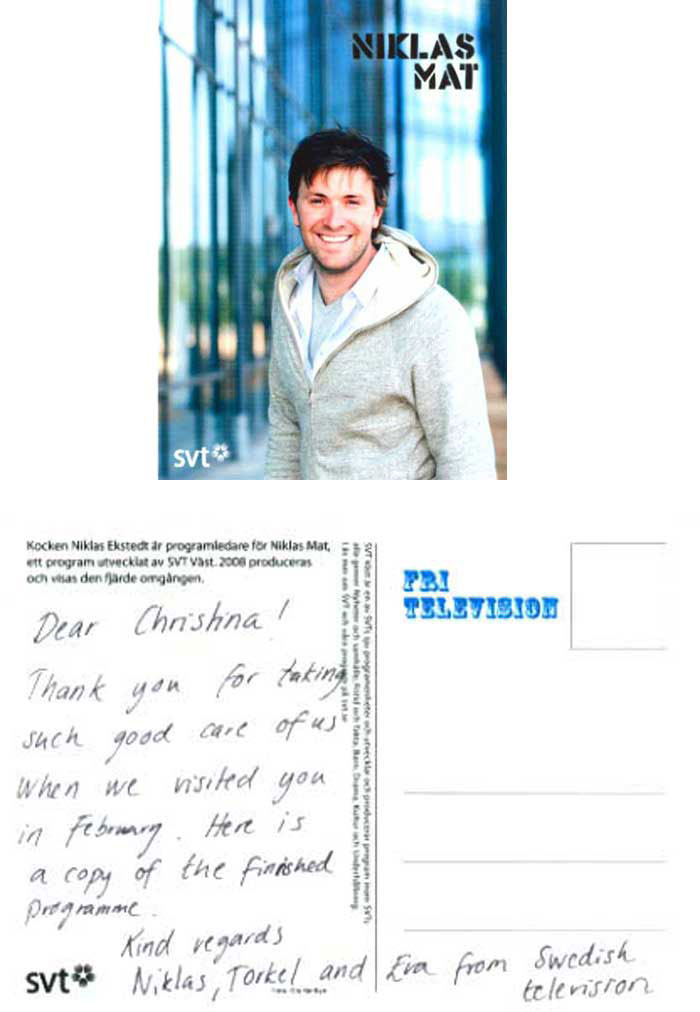 NIKLAS
MAT
svt
Kocken Niklas Ekstedt är programledare för Niklas Mat,
ett program utvecklat av SVT Väst. 2008 produceras
och visas den fjärde omgången.
Dear Christina!
Thank you for taking
such good care of us
when we visited you
in February. Here is
a copy of the finished
programme.
Kind regards
Niklas, Torkel and Eva from Swedish
television
svt
SVT Väst är en av SVTs sju programenheter och utvecklar och producerar program inom SVTs
alla genrer: Nyheter och samhälle, Fritid och fakta, Barn, Drama, Kultur och Underhållning.
Läs mer om SVT och våra program på svt.se
FRI
TELEVISION